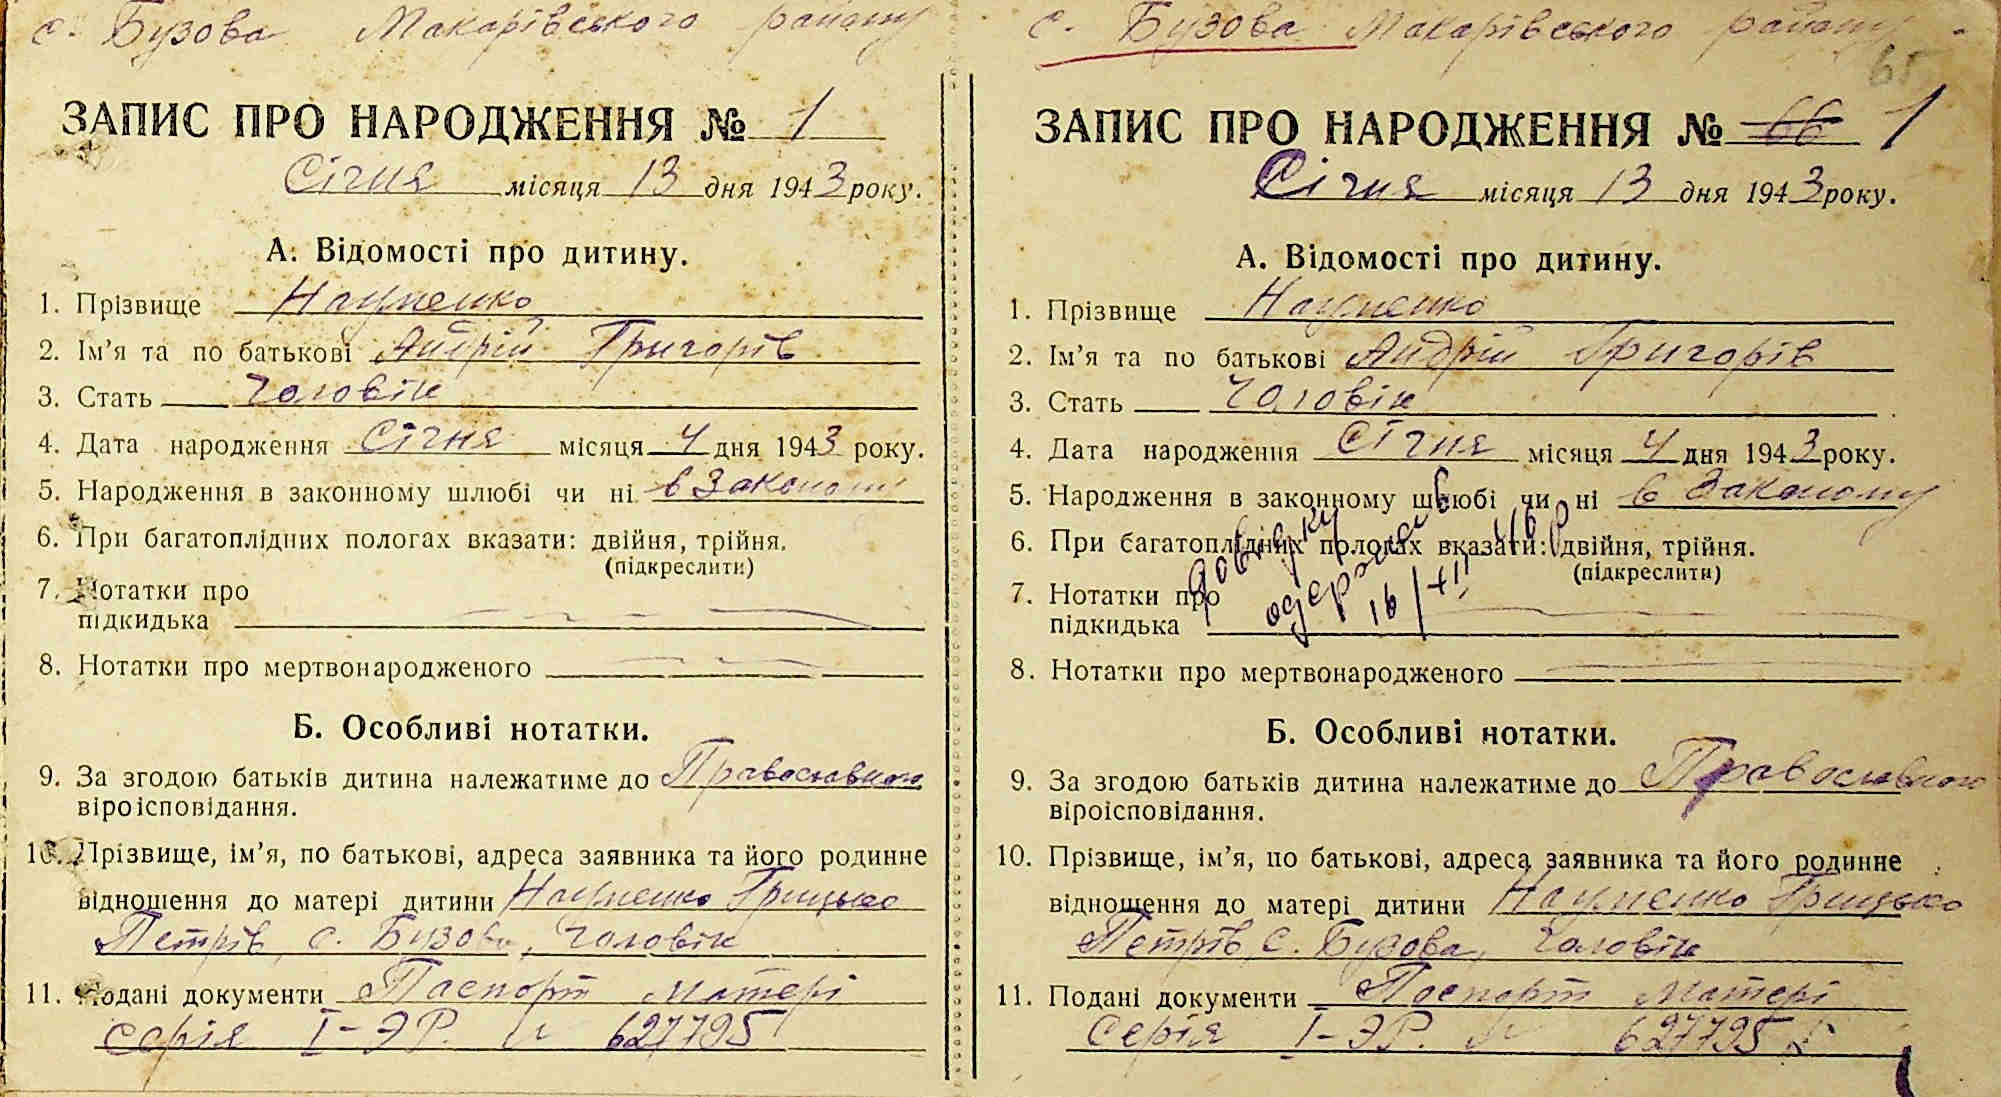 с. Бузова Макарівського району
ЗАПИС ПРО НАРОДЖЕННЯ № 1
Січня місяця 13 дня 1943 року.
А. Відомості про дитину.
1. Прізвище Науменко
2. Ім'я та по батькові Андрій Григорів
3. Стать Чоловік
4. Дата народження Січня місяця 4 дня 1943 року.
5. Народження в законному шлюбі чи ні в Законому
6. При багатоплідних пологах вказати: двійня, трійня.
(підкреслити)
7. Нотатки про
підкидька
8. Нотатки про мертвонародженого
Б. Особливі нотатки.
9. За згодою батьків дитина належатиме до Православного
віроісповідання.
10. Прізвище, ім'я, по батькові, адреса заявника та його родинне
відношення до матері дитини Науменко Грицько
Петрів, с. Бузова, Чоловік
11. Подані документи Паспорт матері
серія І-ЭР. № 627795
с. Бузова Макарівського району
65
ЗАПИС ПРО НАРОДЖЕННЯ № 66 1
Січня місяця 13 дня 1943 року.
А. Відомості про дитину.
1. Прізвище Науменко
2. Ім'я та по батькові Андрій Григорів
3. Стать Чоловік
4. Дата народження Січня місяця 4 дня 1943 року.
5. Народження в законному шлюбі чи ні в Законому
6. При багатоплідних пологах вказати: двійня, трійня.
(підкреслити)
довідку
одержав
16/XII 46 р
7. Нотатки про
підкидька
8. Нотатки про мертвонародженого
Б. Особливі нотатки.
9. За згодою батьків дитина належатиме до Православного
віроісповідання.
10. Прізвище, ім'я, по батькові, адреса заявника та його родинне
відношення до матері дитини Науменко Грицько
Петрів, с. Бузова, Чоловік
11. Подані документи Паспорт матері
Серія І-ЭР. № 627795